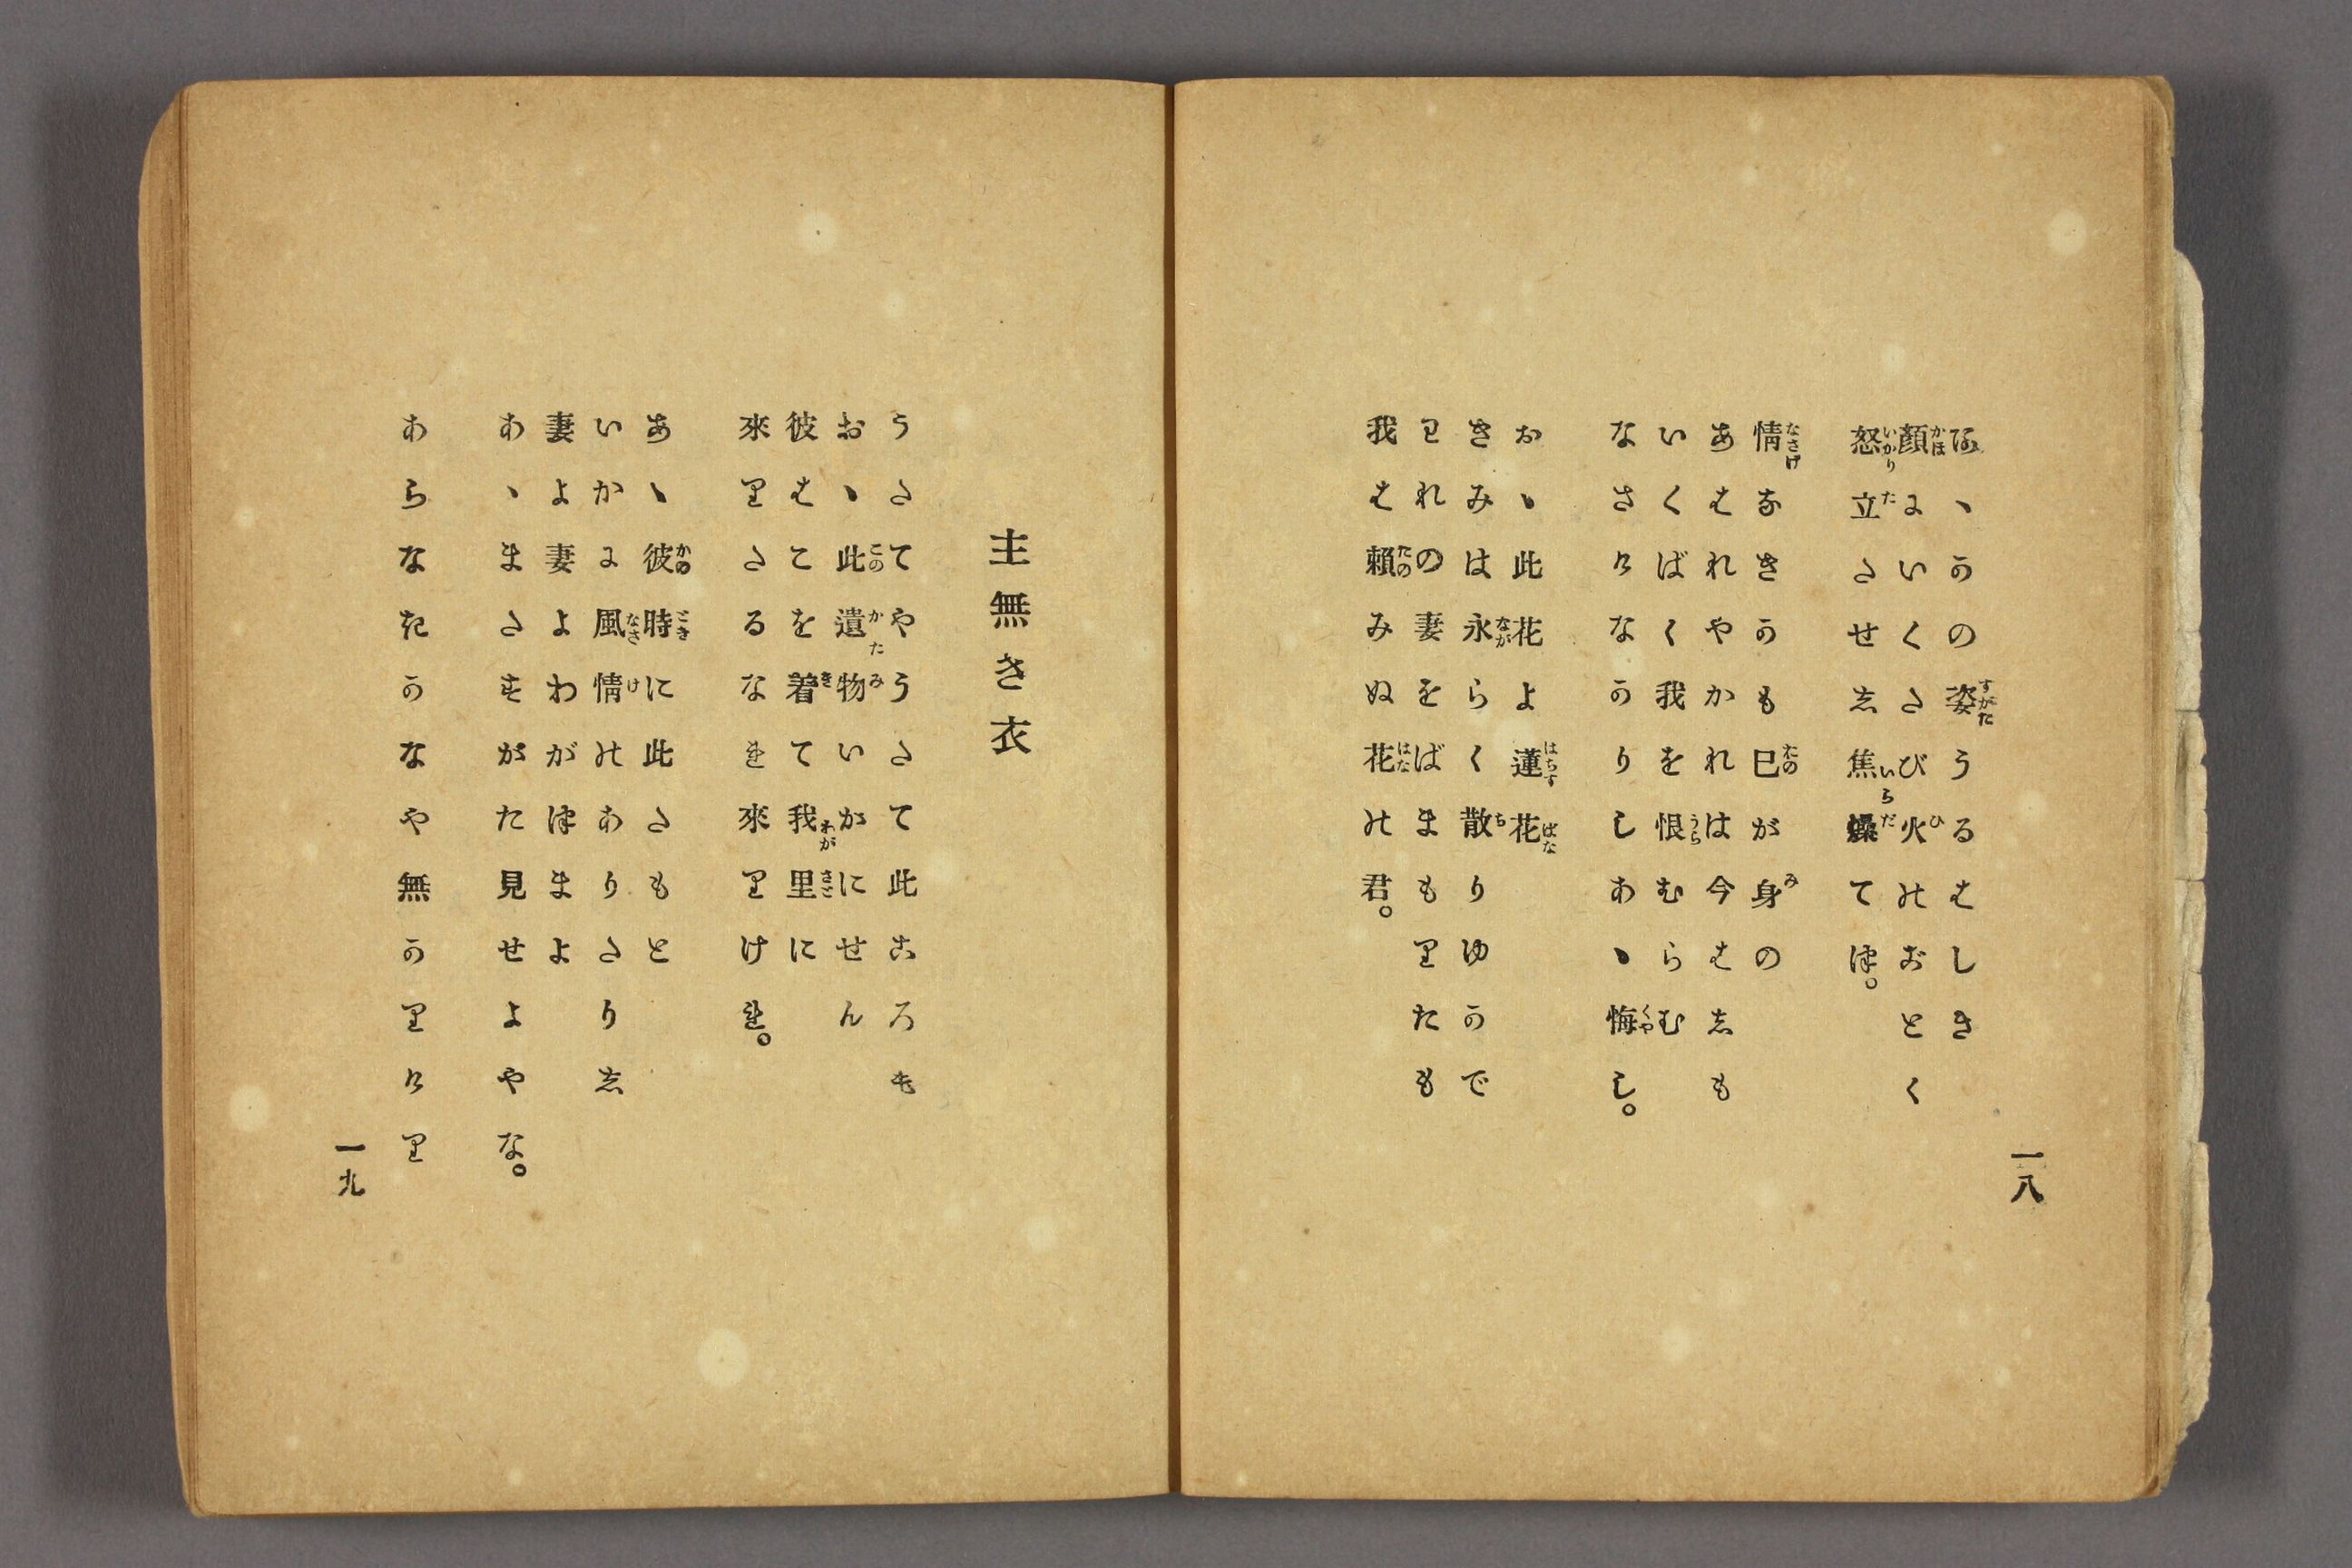 一八
あ、かの姿うるはしき
顏にいくたび火のごとく
怒立たせし焦燥てつ。
情なきかも己が身の
あはれやかれは今はしも
いくばく我を恨むらむ
なさけなかりしあ、悔し。
お、此花よ蓮花
きみは永らく散りゆかで
われの妻をばまもりたも
我は賴みぬ花の君。
主無き衣
うたてやうたて此ころも
お、此遺物いかにせん
彼はこを着て我里に
來りたるなれ來りけれ。
あ、彼時に此たもと
いかに風情のありたりし
妻よ妻よわがつまよ
あ、またすがた見せよやな。
あらなきかなや無かりけり
一九